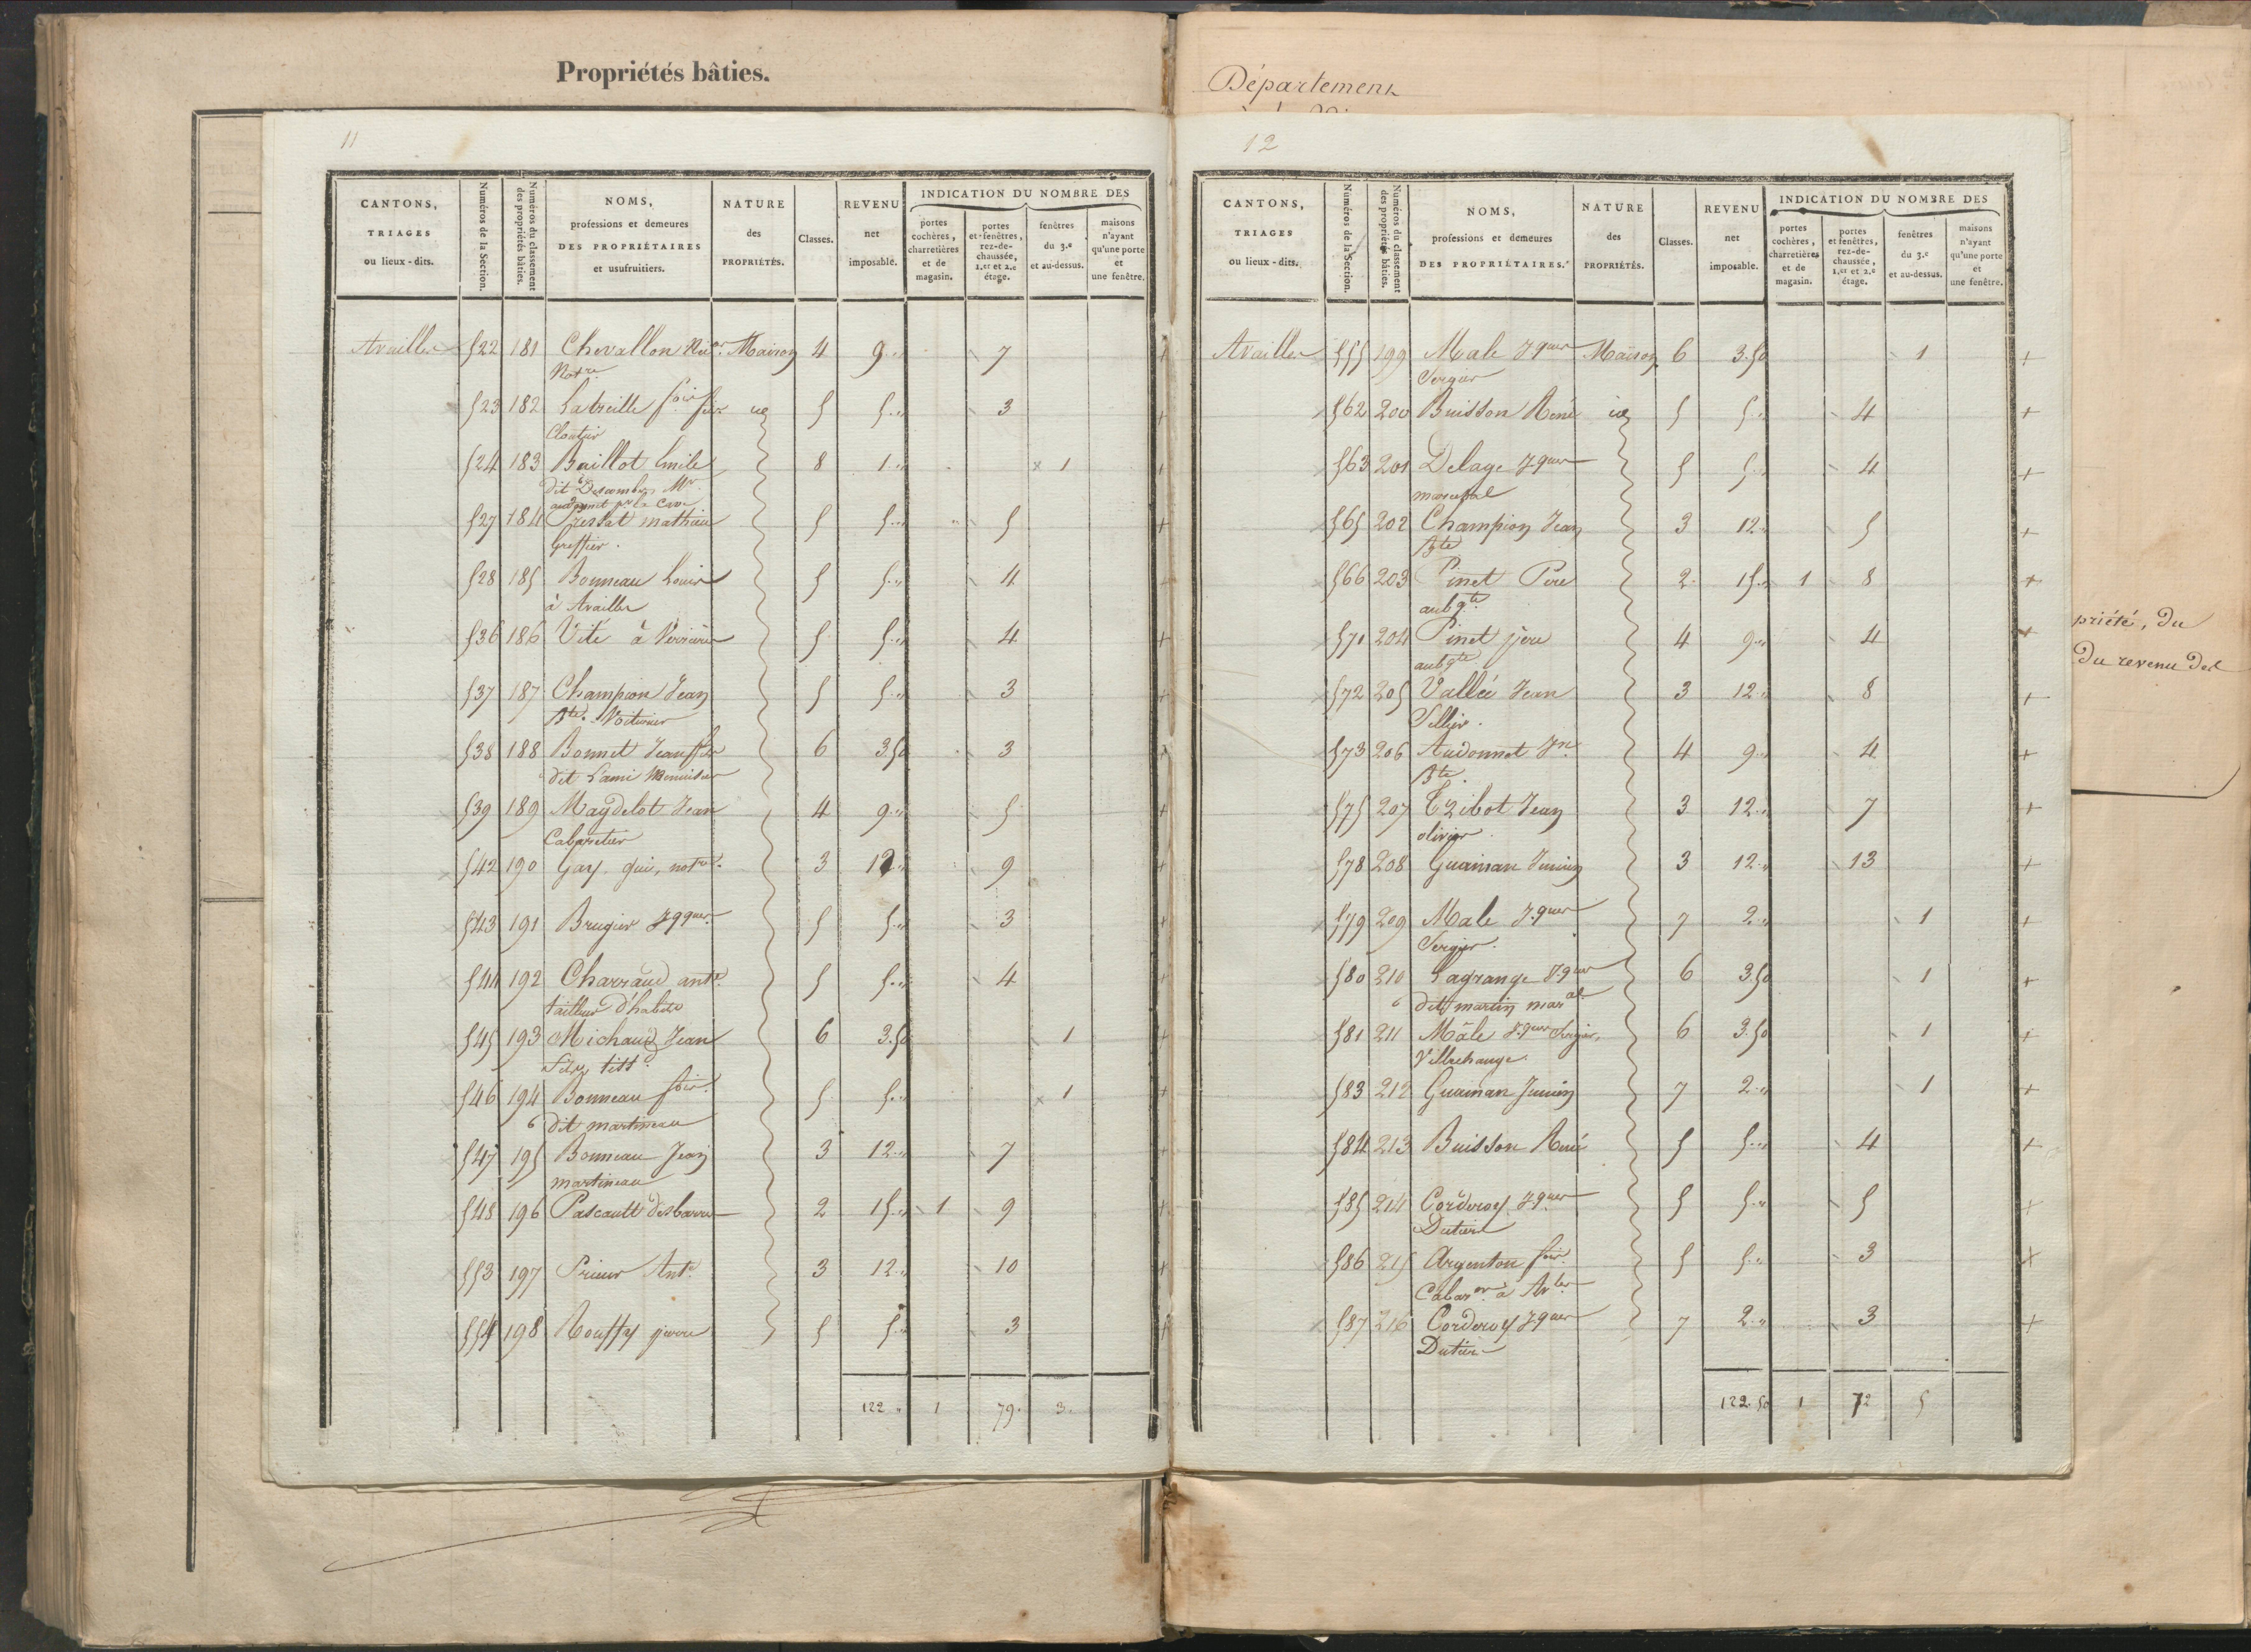 Propriétés bâties.
Département
11
CANTONS, TRIAGES ou lieux-dits. Numéros de la Section. Numéros du classement des propriétés bâties. NOMS, professions et demeures DES PROPRIÉTAIRES et usufruitiers. NATURE des PROPRIÉTÉS. Classes. REVENU net imposable. INDICATION DU NOMBRE DES portes cochères, charretières et de magasin. portes et fenêtres, rez-de-chaussée, 1.er et 2.e étage. fenêtres du 3.e et au-dessus. maisons n'ayant qu'une porte et une fenêtre.
Availles 522 181 Chevallon Maison 4 9 " 7
Not.re
523 182 Latreille f.ois id 5 5 " 3
Cloutier
524 183 Baillot Emile 8 1 " x 1
dit Descombes M.r
527 184 Prestat mathieu 5 5 " 5
Greffier.
528 185 Bonneau Louis 5 5 " 4
à Availles
536 186 Vité à Verrières 5 5 " 4
537 187 Champion Jean 5 5 " 3
B.te Voiturier
538 188 Bonnet Jean 6 3 50 3
dit L'ami Menuisier
539 189 Maydelot Jean 4 9 " 5
Cabaretier
542 190 Gay, gui, not.re 3 12 " 9
543 191 Brugier Jqques 5 5 " 3
544 192 Charraud ant.e 5 5 " 4
tailleur d'habits
545 193 Michaud Jean 6 3.50 1
546 194 Bonneau f.ois 5 5 " x 1
6 dit martineau
547 195 Bonneau Jean 3 12 " 7
martineau
548 196 Pascault desbarres 2 15 " 1 9
553 197 Prieur Ant.e 3 12 " 10
554 198 Rouffy pierre 5 5 " 3
122 " 1 79. 3.
12
CANTONS, TRIAGES ou lieux-dits. Numéros de la Section. Numéros du classement des propriétés bâties. NOMS, professions et demeures DES PROPRIÉTAIRES. NATURE des PROPRIÉTÉS. Classes. REVENU net imposable. INDICATION DU NOMBRE DES portes cochères, charretières et de magasin. portes et fenêtres, rez-de-chaussée, 1.er et 2.e étage. fenêtres du 3.e et au-dessus. maisons n'ayant qu'une porte et une fenêtre.
Availles 555 199 Male Jques Maison 6 3.50 1 +
Sergier
562 200 Buisson René id 5 5 " 4 +
563 201 Delage Jques 5 5 " 4 +
maréchal
565 202 Champion Jean 3 12 " 5 +
B.te
566 203 Pinet Père 2 15 " 1 8 +
aubg.te
571 204 Pinet père 4 9 " 4 +
aubg.te
572 205 Vallée Jean 3 12 " 8 +
Sellier.
573 206 Audonnet J.n 4 9 " 4 +
B.te
575 207 Tribot Jean 3 12 " 7 +
olivier
578 208 Guainan Junien 3 12 " 13 +
579 209 Male Jques 7 2 " 1 +
Sergier.
580 210 Lagrange Jques 6 3.50 1 +
6 dit martin mar.al
581 211 Mâle Jques Sergier, 6 3.50 1 +
Villechange
583 212 Guainan Junien 7 2 " 1 +
584 213 Buisson René 5 5 " 4 +
585 214 Corderoy Jques 5 5 " 5 +
586 215 Argenton f.ois 5 5 " 3 +
Cabar.er à Av.les
587 216 Corderoy Jques 7 2 " 3 +
122.50 1 72 5
priété, du
du revenu des